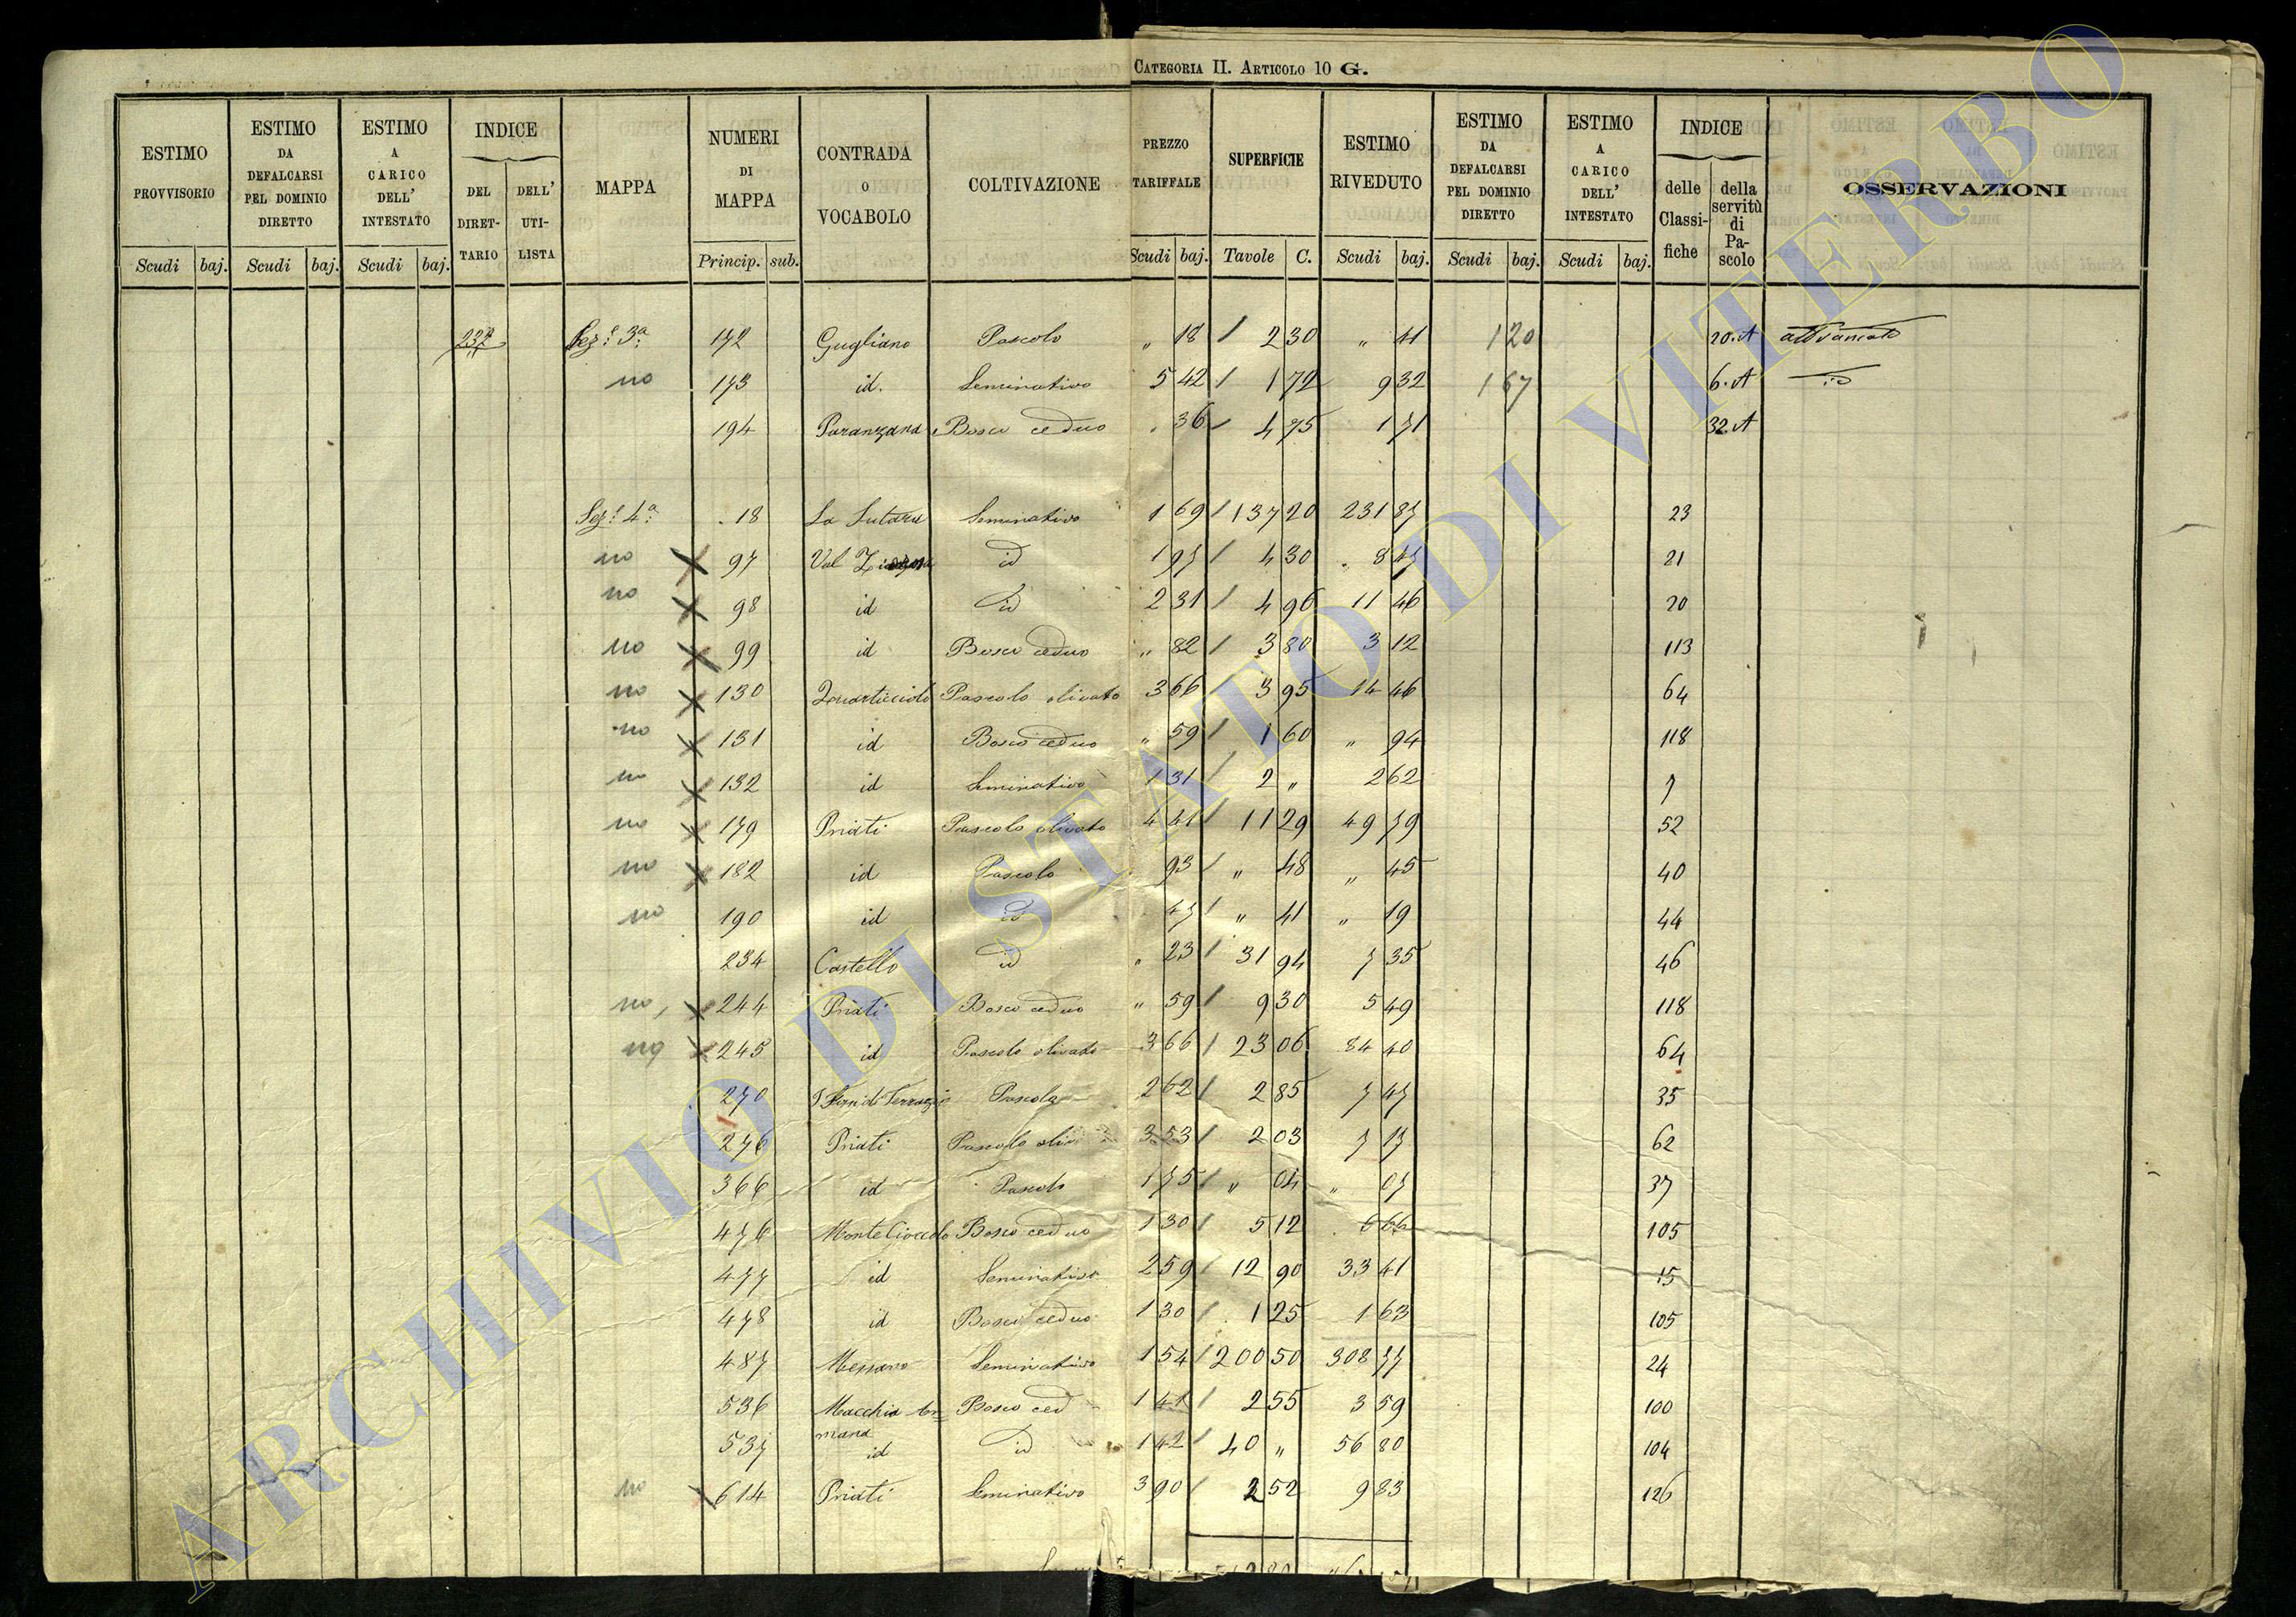 CATEGORIA II. ARTICOLO 10 G.
ESTIMO PROVVISORIO Scudi baj.
ESTIMO DA DEFALCARSI PEL DOMINIO DIRETTO Scudi baj.
ESTIMO A CARICO DELL' INTESTATO Scudi baj.
INDICE DEL DIRET-TARIO DELL' UTI-LISTA
MAPPA
NUMERI DI MAPPA Princip. sub.
CONTRADA O VOCABOLO
COLTIVAZIONE
PREZZO TARIFFALE Scudi baj.
SUPERFICIE Tavole C.
ESTIMO RIVEDUTO Scudi baj.
ESTIMO DA DEFALCARSI PEL DOMINIO DIRETTO Scudi baj.
ESTIMO A CARICO DELL' INTESTATO Scudi baj.
INDICE delle Classi-fiche della servitù di Pa-scolo
OSSERVAZIONI
232 Sez.e 3a 172 Gugliano Pascolo " 18 / 2 30 " 41 1 20 20.A
no 173 id. Seminativo 5 42 / 1 72 9 32 1 67 6.A id
194 Paranzana Bosco ceduo 36 / 4 75 1 71 32.A
Sez.e 4a 18 Seminativo 1 69 / 137 20 231 87 23
no X 97 Val id 1 97 / 4 30 " 8 47 21
no X 98 id id 2 31 / 4 96 11 46 20
no X 99 id Bosco ceduo " 82 / 3 80 3 12 113
no X 130 Quarticciolo Pascolo olivato 3 66 3 95 14 46 64
no X 131 id Bosco ceduo " 59 / 1 60 " 94 118
no X 132 id Seminativo 1 31 / 2 " 2 62 7
no X 179 Priati Pascolo olivato 4 41 / 11 29 49 79 52
no X 182 id Pascolo 93 / " 48 " 45 40
no 190 id id 47 / " 41 " 19 44
234 Castello id " 23 / 31 94 7 35 46
no X 244 Priati Bosco ceduo " 59 / 9 30 5 49 118
no X 245 id Pascolo olivato 3 66 / 23 06 84 40 64
270 Pascolo 2 62 / 2 85 7 47 35
276 Priati Pascolo oliv 3 53 / 2 03 7 17 62
366 id Pascolo 1 75 / " 04 " 07 37
476 Monte Cioccolo Bosco ceduo 1 30 / 5 12 6 66 105
477 id Seminativo 2 59 / 12 90 33 41 15
478 id Bosco ceduo 1 30 / 1 25 1 63 105
487 Messano Seminativo 1 54 / 200 50 308 77 24
536 Macchia Bosco ced 1 41 / 2 55 3 59 100
mana
537 id id 1 42 / 40 " 56 80 104
no X 614 Priati Seminativo 3 90 / 2 52 9 83 126
ARCHIVIO DI STATO DI VITERBO